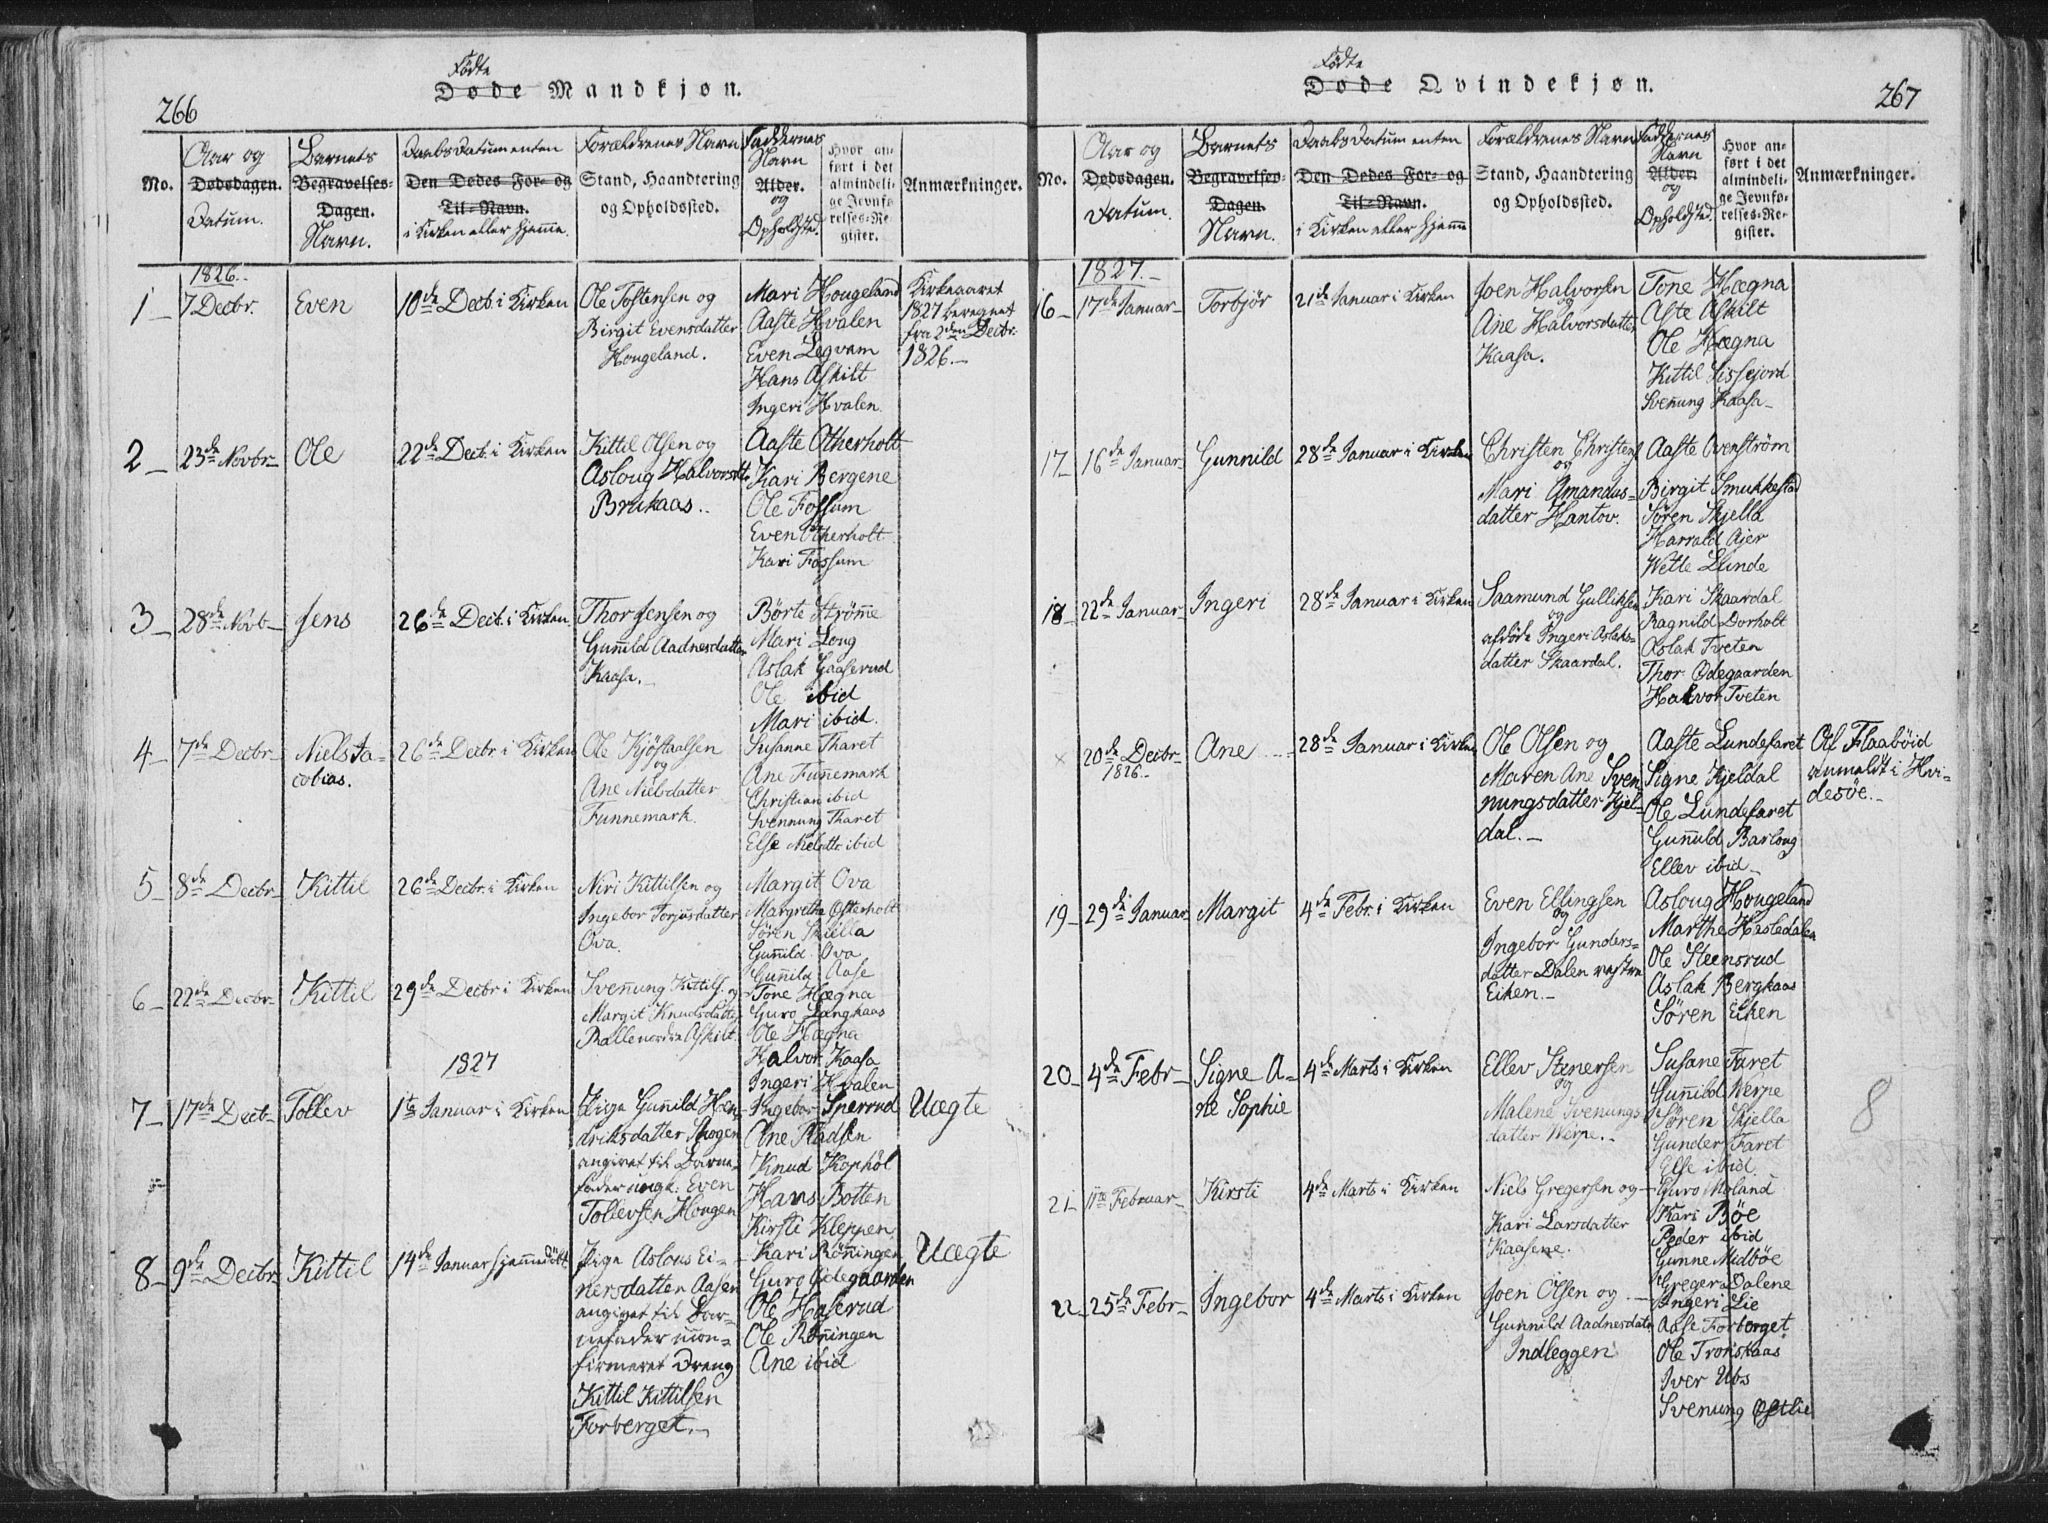 266
Fødte
Døde Mandkjøn.
No.
Aar og
Dødsdagen.
Datum.
Barnets
Begravelses-
Dagen.
Navn.
Daabsdatum enten
Den Dødes For- og
Til-Navn.
i Kirken eller hjemme.
Forældrenes Navn
Stand, Haandtering
og Opholdssted.
Faddernes
Navn
Alder.
og
Opholdsted.
Hvor an-
ført i det
almindeli-
ge Jevnfø-
relses-Re-
gister.
Anmærkninger.
1826.
1 7 Decbr. Even 10de Decb. i Kirken
Ole Tostensen og
Birgit Evensdatter
Hougeland.
Mari Hougeland
Aaste Hvalen
Even Legvam
Hans Askilt
Ingeri Hvalen.
Kirkeaaret
1827 beregnet
fra 2den Decbr.
1826.
2 23de Novbr Ole 22de Decb. i Kirken
Kittil Olsen og
Asloug Halvorsdtr
Brukaas..
Aaste Otherholt
Kari Bergene
Ole Fossum
Even Otherholt
Kari Fossum
3 28de Novb Jens 26de Decb. i Kirken
Thor Jensen og
Guñild Aadnesdatter
Kaasa.
Børte Strøm̃e
Mari Long
Aslak Gaaserud
Ole ibid
Mari ibid.
4 7de Decbr Niels Ja-
cobias.
26de Decbr i Kirken
Ole Kjøstaalsen
og
Ane Nielsdatter
Funnemark.
Susanne Tharet
Ane Funnemark
Christian ibid
Svennung Tharet
Else Nielsdtr ibid
5 8de Decbr Kittil 26de Decbr. i Kirken
Niri Kittilsen og
Ingebor Torjusdatter
Ova.
Margit Ova
Margrethe Osterholt
Søren Skiella
Guñild Ova
Guñild Aase
6 22de Decbr. Kittil 29de Decbr i Kirken
Sveñung Kittils. og
Margit Knudsdatter
Balle nordra Askilt.
Tone Hægna
Guro Langkaas
Ole Hægna
Halvor Kaasa
Ingeri Hvalen
1827
7 17de Decb. Tollev 1te Januar i Kirken
Pige Guñild Hen-
driksdatter Skogen
angivet til Barne-
fader ungk. Even
Tollevsen Hougen
Ingebor Sperrud
Ane Radsen
Knud Kophøl
Hans Botten
Kirsti Kleppen
Uægte
8 9de Decbr Kittil 14de Januar hjemmedøbt
Pige Aslous Ei-
nersdatter Aasen
angivet til Bar-
nefader ucon-
firmeret Dreng
Kittil Kittilsen
Forberget.
Kari Røningen
Guro Ødegaarden
Ole Haserud
Ole Røningen
Ane ibid
Uægte
267
Fødte
Døde Qvindekjøn.
No.
Aar og
Dødsdagen.
Datum.
Barnets
Begravelses-
Dagen.
Navn.
Daabsdatum enten
Den Dødes For- og
Til-Navn.
i Kirken eller hjemme
Forældrenes Navn
Stand, Haandtering
og Opholdssted.
Faddernes
Navn
Alder.
og
Opholdsted.
Hvor an-
ført i det
almindeli-
ge Jevnfø-
relses-Re-
gister.
Anmærkninger.
1827.
16 17de Januar Torbjør 21de Januar i Kirken
Joen Halvorsen
og
Ane Halvorsdatter
Kaasa.
Tone Hægna
Aste Askilt
Ole Hægna
Kittil Sissejord
Sveñung Kaasa
17 16de Januar Gunnild 28de Januar i Kirken
Christen Christens.
og
Mari Amandus-
datter Hantov.
Aaste Ovenstrøm
Birgit Smukkestad
Søren Skjella
Harrald Ajer
Wetle Lunde
18 22de Januar Ingeri 28de Januar i Kirken
Saamund Gulliksen
og
afdøde Ingeri Aslaks-
datter Skaardal.
Kari Skaardal
Ragnild Dorholt
Aslak Tveten
Thor Ødegaarden
Halvor Tveten
× 20de Decbr
1826.
Ane 28de Januar i Kirken
Ole Olsen og
Maren Ane Sven-
nungsdatter Kjel-
dal.
Aaste Lundefaret
Signe Kjeldal
Ole Lundefaret
Guñuld Barloug
Ellev ibid
Af Flaabøid
anmeldt i Hvi-
desøe.
19 29de Januar Margit 4de Febr. i Kirken
Even Ellingsen
og
Ingebor Gunders-
datter Dalen vestre
Eiken.
Asloug Hougeland
Marthe Hesledalen
Ole Steensrud
Aslak Bergkaas
Søren Eiken
20 4de Febr Signe A-
ne Sophie
4de Marts i Kirken
Ellev Stenersen
og
Malene Svenungs-
datter Werpe.
Susane Faret
Guñild Werpe
Søren Skjella
Gunder Faret
Else ibid
8
21 11te Februar Kirsti 4de Marts i Kirken
Niels Gregersen og
Kari Larsdatter
Kaasene.
Guro Moland
Kari Bøe
Peder ibid
Gunne Midbøe
Greger Dalene
22 25de Febr Ingebor 4de Marts i Kirken
Joen Olsen og
Gunnild Aadnesdatr
Indleggen
Ingeri Lie
Aase Forberget
Ole Tronskaas
Iver Ubs
Svenung Østlie